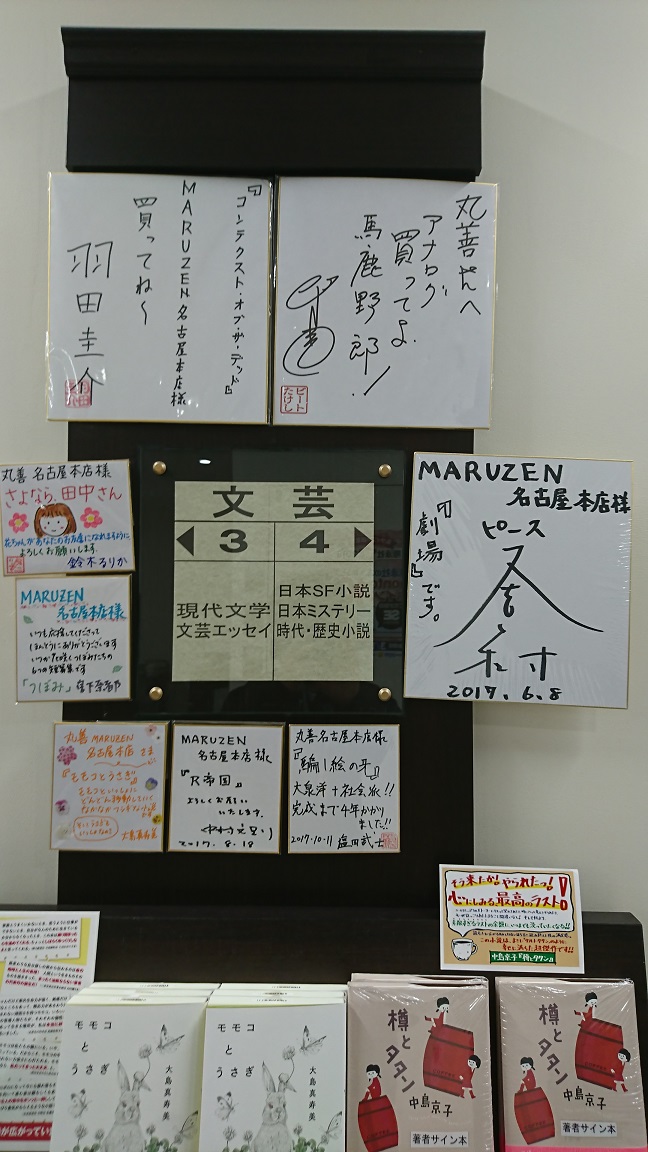 『コンテクスト・オブ・ザ・デッド』
MARUZEN名古屋本店様
買ってね〜
羽田圭介
丸善さんへ
アナログ
買ってよ
馬鹿野郎!
ビート
たけし
丸善 名古屋本店様
さよなら、田中さん
花ちゃんがあなたのお友達になれますように
よろしくお願いします。
鈴木るりか
MARUZEN
名古屋本店様
いつも応援してくださって
ほんとうにありがとうございます
いつか花咲くつぼみたちの
6つの短篇集です
「つぼみ」宮下奈都
文芸
3 4
現代文学
文芸エッセイ
日本SF小説
日本ミステリー
時代・歴史小説
MARUZEN
名古屋本店様
『劇場』です。
ピース
又吉
2017.6.8
丸善 MARUZEN
名古屋本店 さま
『モモコとうさぎ』
モモコといっしょに
どんどん移動して
大島真寿美
MARUZEN
名古屋本店様
『R帝国』
よろしくお願い
いたします。
中村文則
2017.8.18
丸善名古屋本店様
『騙し絵の牙』
大泉洋+社会派!!
完成まで4年かかり
ました!!
2017.10.11 塩田武士
そう来たか!やられたっ!
心にしみる最高のラスト!
中島京子『樽とタタン』
モモコ
と
うさぎ
大島真寿美
モモコ
と
うさぎ
大島真寿美
樽とタタン
中島京子
著者サイン本
樽とタタン
中島京子
著者サイン本
が広がってい